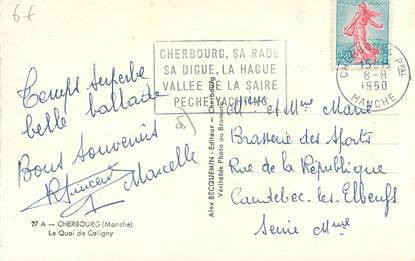 6€
CHERBOURG, SA RADE
SA DIGUE, LA HAGUE
VALLEE DE LA SAIRE
PECHE YACHTING
CHERBOURG Ppal
8-8
1960
MANCHE
0,20
Temps superbe
belle ballade
Bons souvenirs
Marcelle
27 A — CHERBOURG (Manche)
Le Quai de Caligny
Alex BECQUEMIN - Editeur - Cherbourg
Véritable Photo au Bromure
Mr et Mme Marie
Brasserie des Sports
Rue de la République
Caudebec-les-Elbeufs
Seine Mme